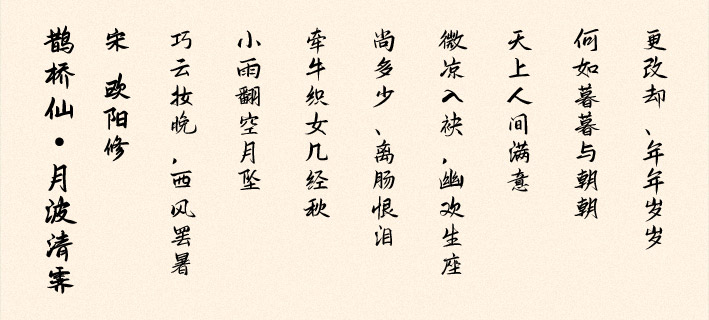 鹊桥仙·月波清霁
宋 欧阳修
巧云妆晚，西风罢暑
小雨翻空月坠
牵牛织女几经秋
尚多少、离肠恨泪
微凉入袂，幽欢生座
天上人间满意
何如暮暮与朝朝
更改却、年年岁岁